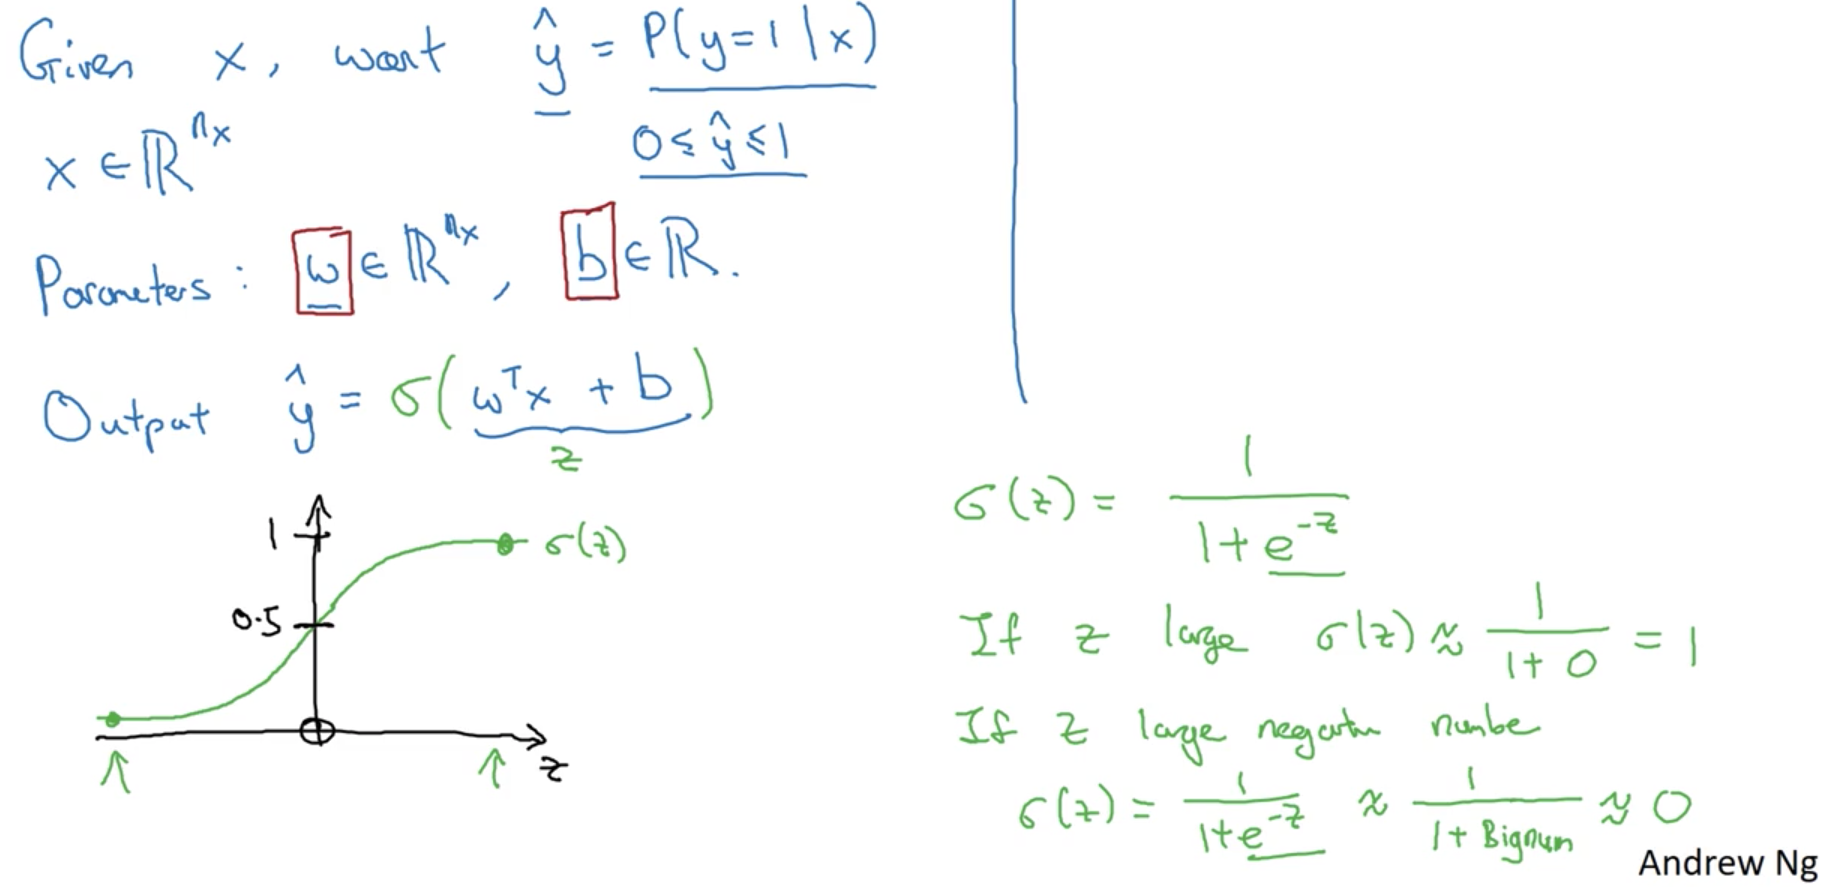 Given x, want ŷ = P(y=1|x)
0 ≤ ŷ ≤ 1
x ∈ ℝ^{nx}
Parameters: w ∈ ℝ^{nx}, b ∈ ℝ.
Output ŷ = σ(wᵀx + b)
z
1
σ(z)
0.5
z
σ(z) = 1/(1+e^{-z})
If z large σ(z) ≈ 1/(1+0) = 1
If z large negative number
σ(z) = 1/(1+e^{-z}) ≈ 1/(1+Bignum) ≈ 0
Andrew Ng